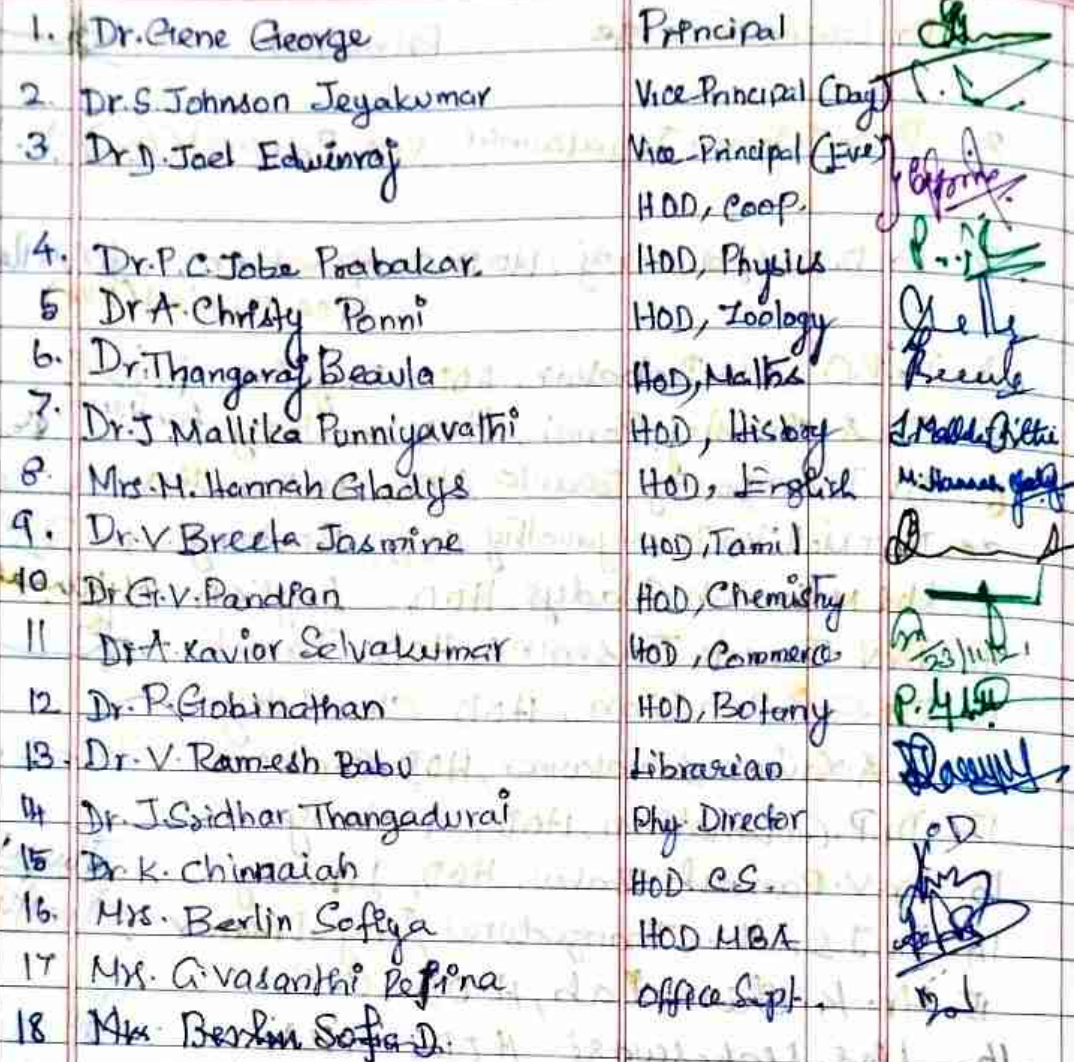 1. Dr. Gene George Principal
2. Dr. S. Johnson Jeyakumar Vice-Principal (Day)
3. Dr. D. Joel Edwinraj Vice-Principal (Eve)
HOD, Coop.
4. Dr. P. C. Jobe Prabakar. HOD, Physics
5 Dr A. Christy Ponni HOD, Zoology
6. Dr. Thangaraj Beaula HOD, Maths
7. Dr. J Mallika Punniyavathi HOD, History
8. Mrs. M. Hannah Gladys HOD, English M. Hannah
9. Dr. V Breeta Jasmine HOD, Tamil
10 Dr G. V. Pandian HOD, Chemistry
11 Dr. A. Xavior Selvakumar HOD, Commerce 23/11/21
12. Dr. P. Gobinathan HOD, Botany
13. Dr. V. Ramesh Babu Librarian
14 Dr. J. Sridhar Thangadurai Phy Director
15 Dr. K. Chinnaiah HOD CS
16. Mrs. Berlin Sofiya HOD MBA
17 Mrs. G. Vasanthi Refina Office Supt.
18 Mrs Berlin Sofia D.